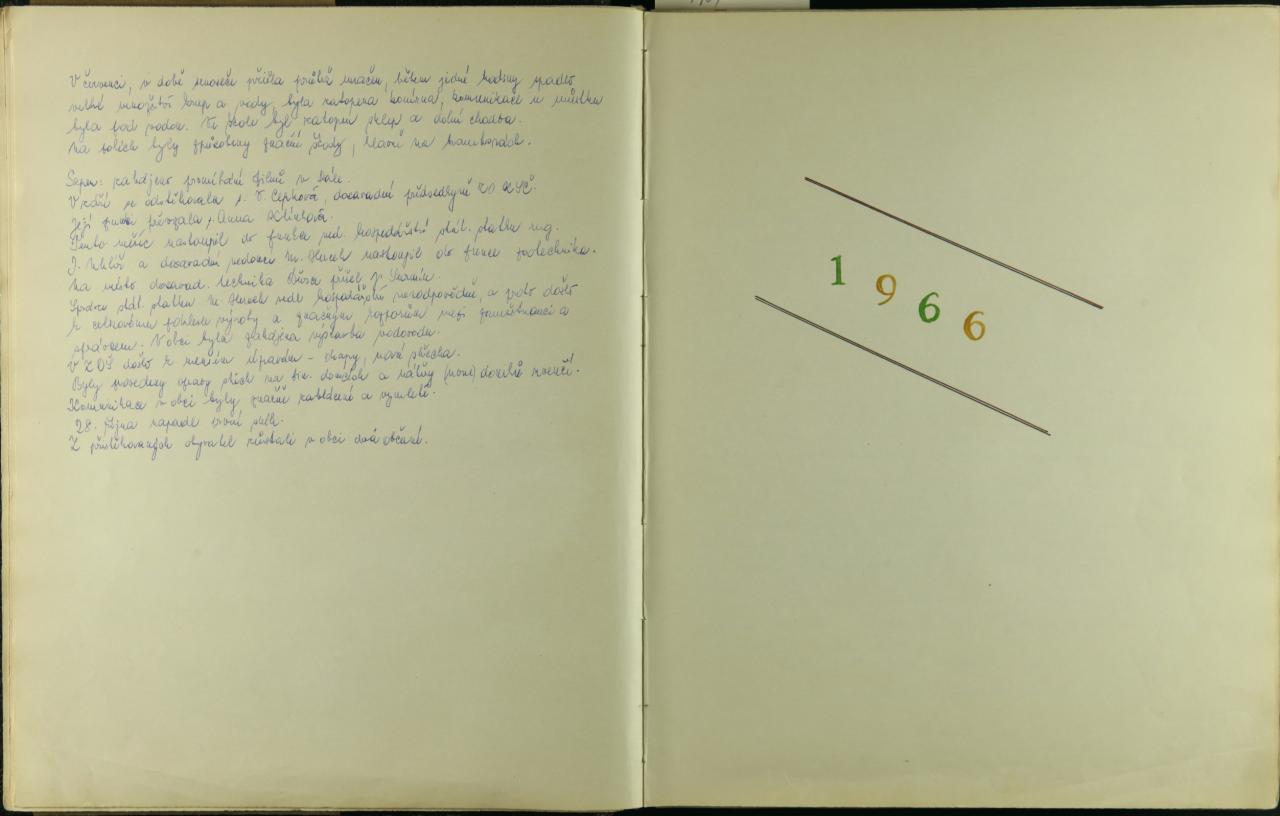 V červenci, v době senoseče přišla průtrž mračen, během jedné hodiny spadlo
velké množství krup a vody, byla zatopena komunikace u můstku
byla pod vodou. Ve škole byl zatopen sklep a dolní chodba.
Na polích byly způsobeny značné škody, hlavně na bramborách.
Srpen: zahájeno promítání filmů v sále.
V září se odstěhovala s. V. Cepková, dosavadní předsedkyně ZO KSČ.
Její funkci převzala s. Anna
Tento měsíc nastoupil do funkce ved. hospodářství stát. statku ing.
J. a dosavadní vedoucí nastoupil do funkce zootechnika.
Na místo dosavad. technika přišel p.
Správce stát. statku vedl hospodářství nezodpovědně, a proto došlo
k celkovému poklesu výroby a značným rozporům mezi zaměstnanci a
správcem. V obci byla zahájena výstavba vodovodu.
V ZDŠ došlo k menším úpravám - okapy, nová střecha.
Byly provedeny opravy střech na domcích a nátěry (nové) domků zvenčí.
Komunikace v obci byly značně
28. října napadl první sníh.
Z přistěhovaných obyvatel zůstali v obci dva občané.
1966